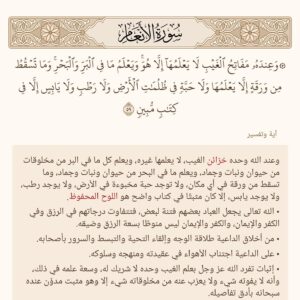 سُورَةُ الأَنْعَامِ
۞وَعِندَهُۥ مَفَاتِحُ ٱلْغَيْبِ لَا يَعْلَمُهَآ إِلَّا هُوَۚ وَيَعْلَمُ مَا فِى ٱلْبَرِّ وَٱلْبَحْرِۚ وَمَا تَسْقُطُ
مِن وَرَقَةٍ إِلَّا يَعْلَمُهَا وَلَا حَبَّةٍ فِى ظُلُمَٰتِ ٱلْأَرْضِ وَلَا رَطْبٍ وَلَا يَابِسٍ إِلَّا فِى
كِتَٰبٍ مُّبِينٍ ٥٩
آية وتفسير
وعند الله وحده خزائن الغيب، لا يعلمها غيره، ويعلم كل ما في البر من مخلوقات
من حيوان ونبات وجماد، ويعلم ما في البحر من حيوان ونبات وجماد، وما
تسقط من ورقة في أي مكان، ولا توجد حبة مخبوءة في الأرض، ولا يوجد رطب،
ولا يوجد يابس، إلا كان مثبتًا في كتاب واضح هو اللوح المحفوظ.
• الله تعالى يجعل العباد بعضهم فتنة لبعض، فتتفاوت درجاتهم في الرزق وفي
الكفر والإيمان، والكفر والإيمان ليس منوطًا بسعة الرزق وضيقه.
• من أخلاق الداعية طلاقة الوجه وإلقاء التحية والتبسط والسرور بأصحابه.
• على الداعية اجتناب الأهواء في عقيدته ومنهجه وسلوكه.
• إثبات تفرد الله عز وجل بعلم الغيب وحده لا شريك له، وسعة علمه في ذلك،
وأنه لا يفوته شيء ولا يعزب عنه من مخلوقاته شيء إلا وهو مثبت مدوَّن عنده
سبحانه بأدق تفاصيله.